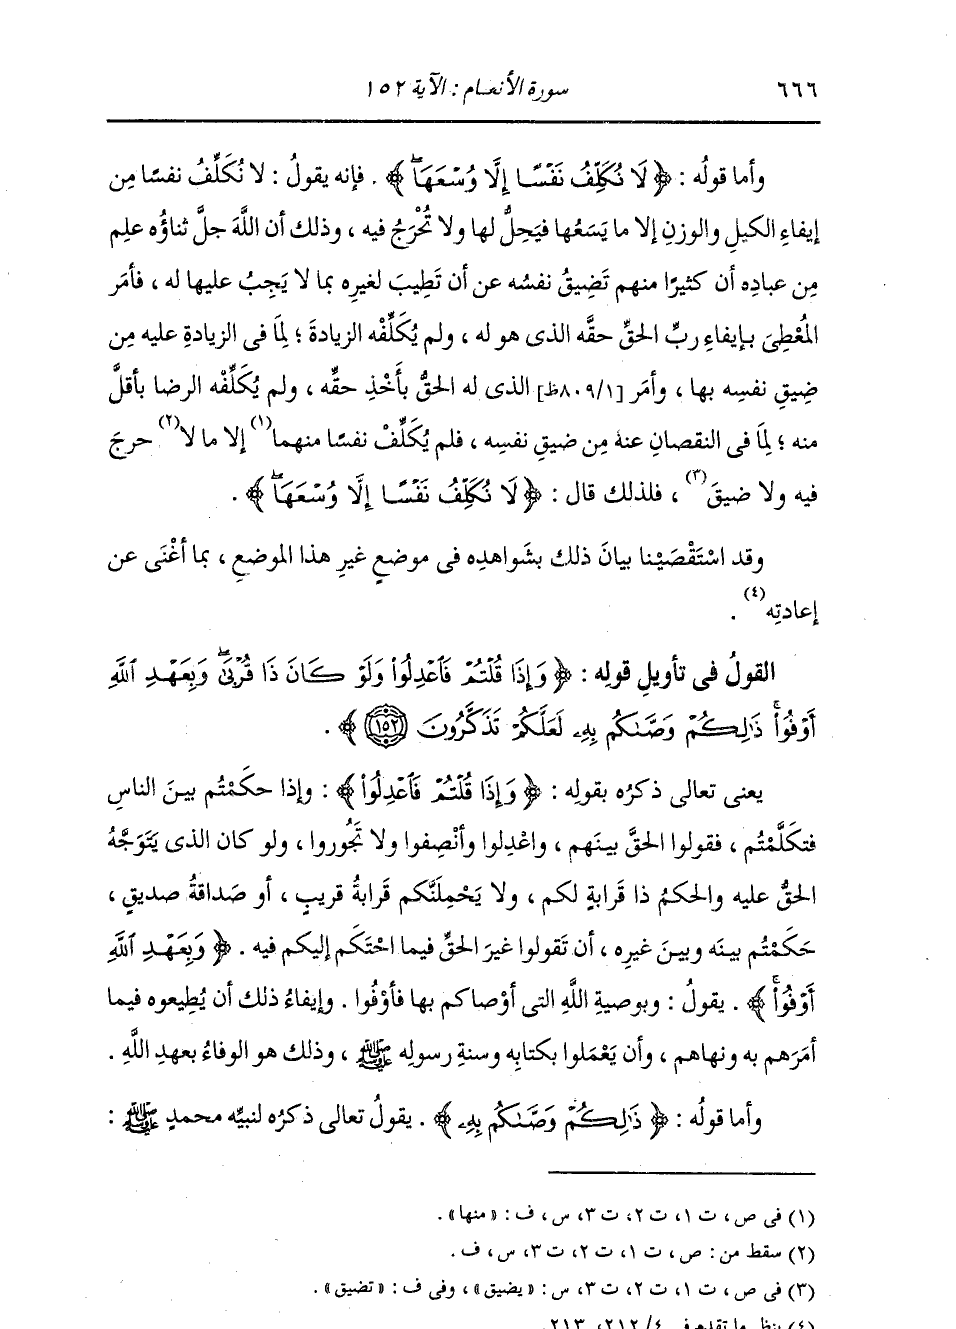 ٦٦٦ سورة الأنعام : الآية ١٥٢
وأما قولُه : ﴿ لَا نُكَلِّفُ نَفْسًا إِلَّا وُسْعَهَا ﴾ . فإنه يقولُ : لا نُكَلِّفُ نفسًا مِن
إيفاءِ الكيلِ والوزنِ إلا ما يَسَعُها فيَحِلُّ لها ولا تُحْرَجُ فيه ، وذلك أن اللَّهَ جلَّ ثناؤُه علِم
مِن عبادِه أن كثيرًا منهم تَضِيقُ نفسُه عن أن تَطِيبَ لغيرِه بما لا يَجِبُ عليها له ، فأمَر
المُعْطِىَ بإيفاءِ ربِّ الحقِّ حقَّه الذى هو له ، ولم يُكَلِّفْه الزيادةَ ؛ لِمَا فى الزيادةِ عليه مِن
ضِيقِ نفسِه بها ، وأمَر [٨٠٩/١ظ] الذى له الحقُّ بأَخْذِ حقِّه ، ولم يُكَلِّفْه الرضا بأقلَّ
منه ؛ لِمَا فى النقصانِ عنه مِن ضيقِ نفسِه ، فلم يُكَلِّفْ نفسًا منهما(١) إلا ما لا(٢) حرجَ
فيه ولا ضيقَ(٣) ، فلذلك قال : ﴿ لَا نُكَلِّفُ نَفْسًا إِلَّا وُسْعَهَا ﴾ .
وقد اسْتَقْصَيْنا بيانَ ذلك بشَواهدِه فى موضعٍ غيرِ هذا الموضعِ ، بما أغْنَى عن
إعادتِه(٤) .
القولُ فى تأويلِ قولِه : ﴿ وَإِذَا قُلْتُمْ فَاعْدِلُوا وَلَوْ كَانَ ذَا قُرْبَىٰ وَبِعَهْدِ اللَّهِ
أَوْفُوا ذَٰلِكُمْ وَصَّىٰكُم بِهِ لَعَلَّكُمْ تَذَكَّرُونَ (١٥٢) ﴾ .
يعنى تعالى ذكرُه بقولِه : ﴿ وَإِذَا قُلْتُمْ فَاعْدِلُوا ﴾ : وإذا حكَمْتُم بينَ الناسِ
فتكَلَّمْتُم ، فقولوا الحقَّ بينَهم ، واعْدِلوا وأنْصِفوا ولا تَجُوروا ، ولو كان الذى يَتَوَجَّهُ
الحقُّ عليه والحكمُ ذا قَرابةٍ لكم ، ولا يَحْمِلَنَّكم قَرابةُ قريبٍ ، أو صَداقةُ صديقٍ ،
حَكَمْتُم بينَه وبينَ غيرِه ، أن تَقولوا غيرَ الحقِّ فيما احْتَكَم إليكم فيه . ﴿ وَبِعَهْدِ اللَّهِ
أَوْفُوا ﴾ . يقولُ : وبوصيةِ اللَّهِ التى أوْصاكم بها فأوْفُوا . وإيفاءُ ذلك أن يُطِيعوه فيما
أمَرَهم به ونهاهم ، وأن يَعْمَلوا بكتابِه وسنةِ رسولِه ﷺ ، وذلك هو الوفاءُ بعهدِ اللَّهِ .
وأما قولُه : ﴿ ذَٰلِكُمْ وَصَّىٰكُم بِهِ ﴾ . يقولُ تعالى ذكرُه لنبيِّه محمدٍ ﷺ :
(١) فى ص ، ت ١، ت ٢، ت ٣، س ، ف : « منها » .
(٢) سقط من : ص ، ت ١، ت ٢، ت ٣، س ، ف .
(٣) فى ص ، ت ١، ت ٢، ت ٣، س : « يضيق » ، وفى ف : « تضيق » .
(٤) ينظر ما تقدم فى ٤/ ٢١٢، ٢١٣.